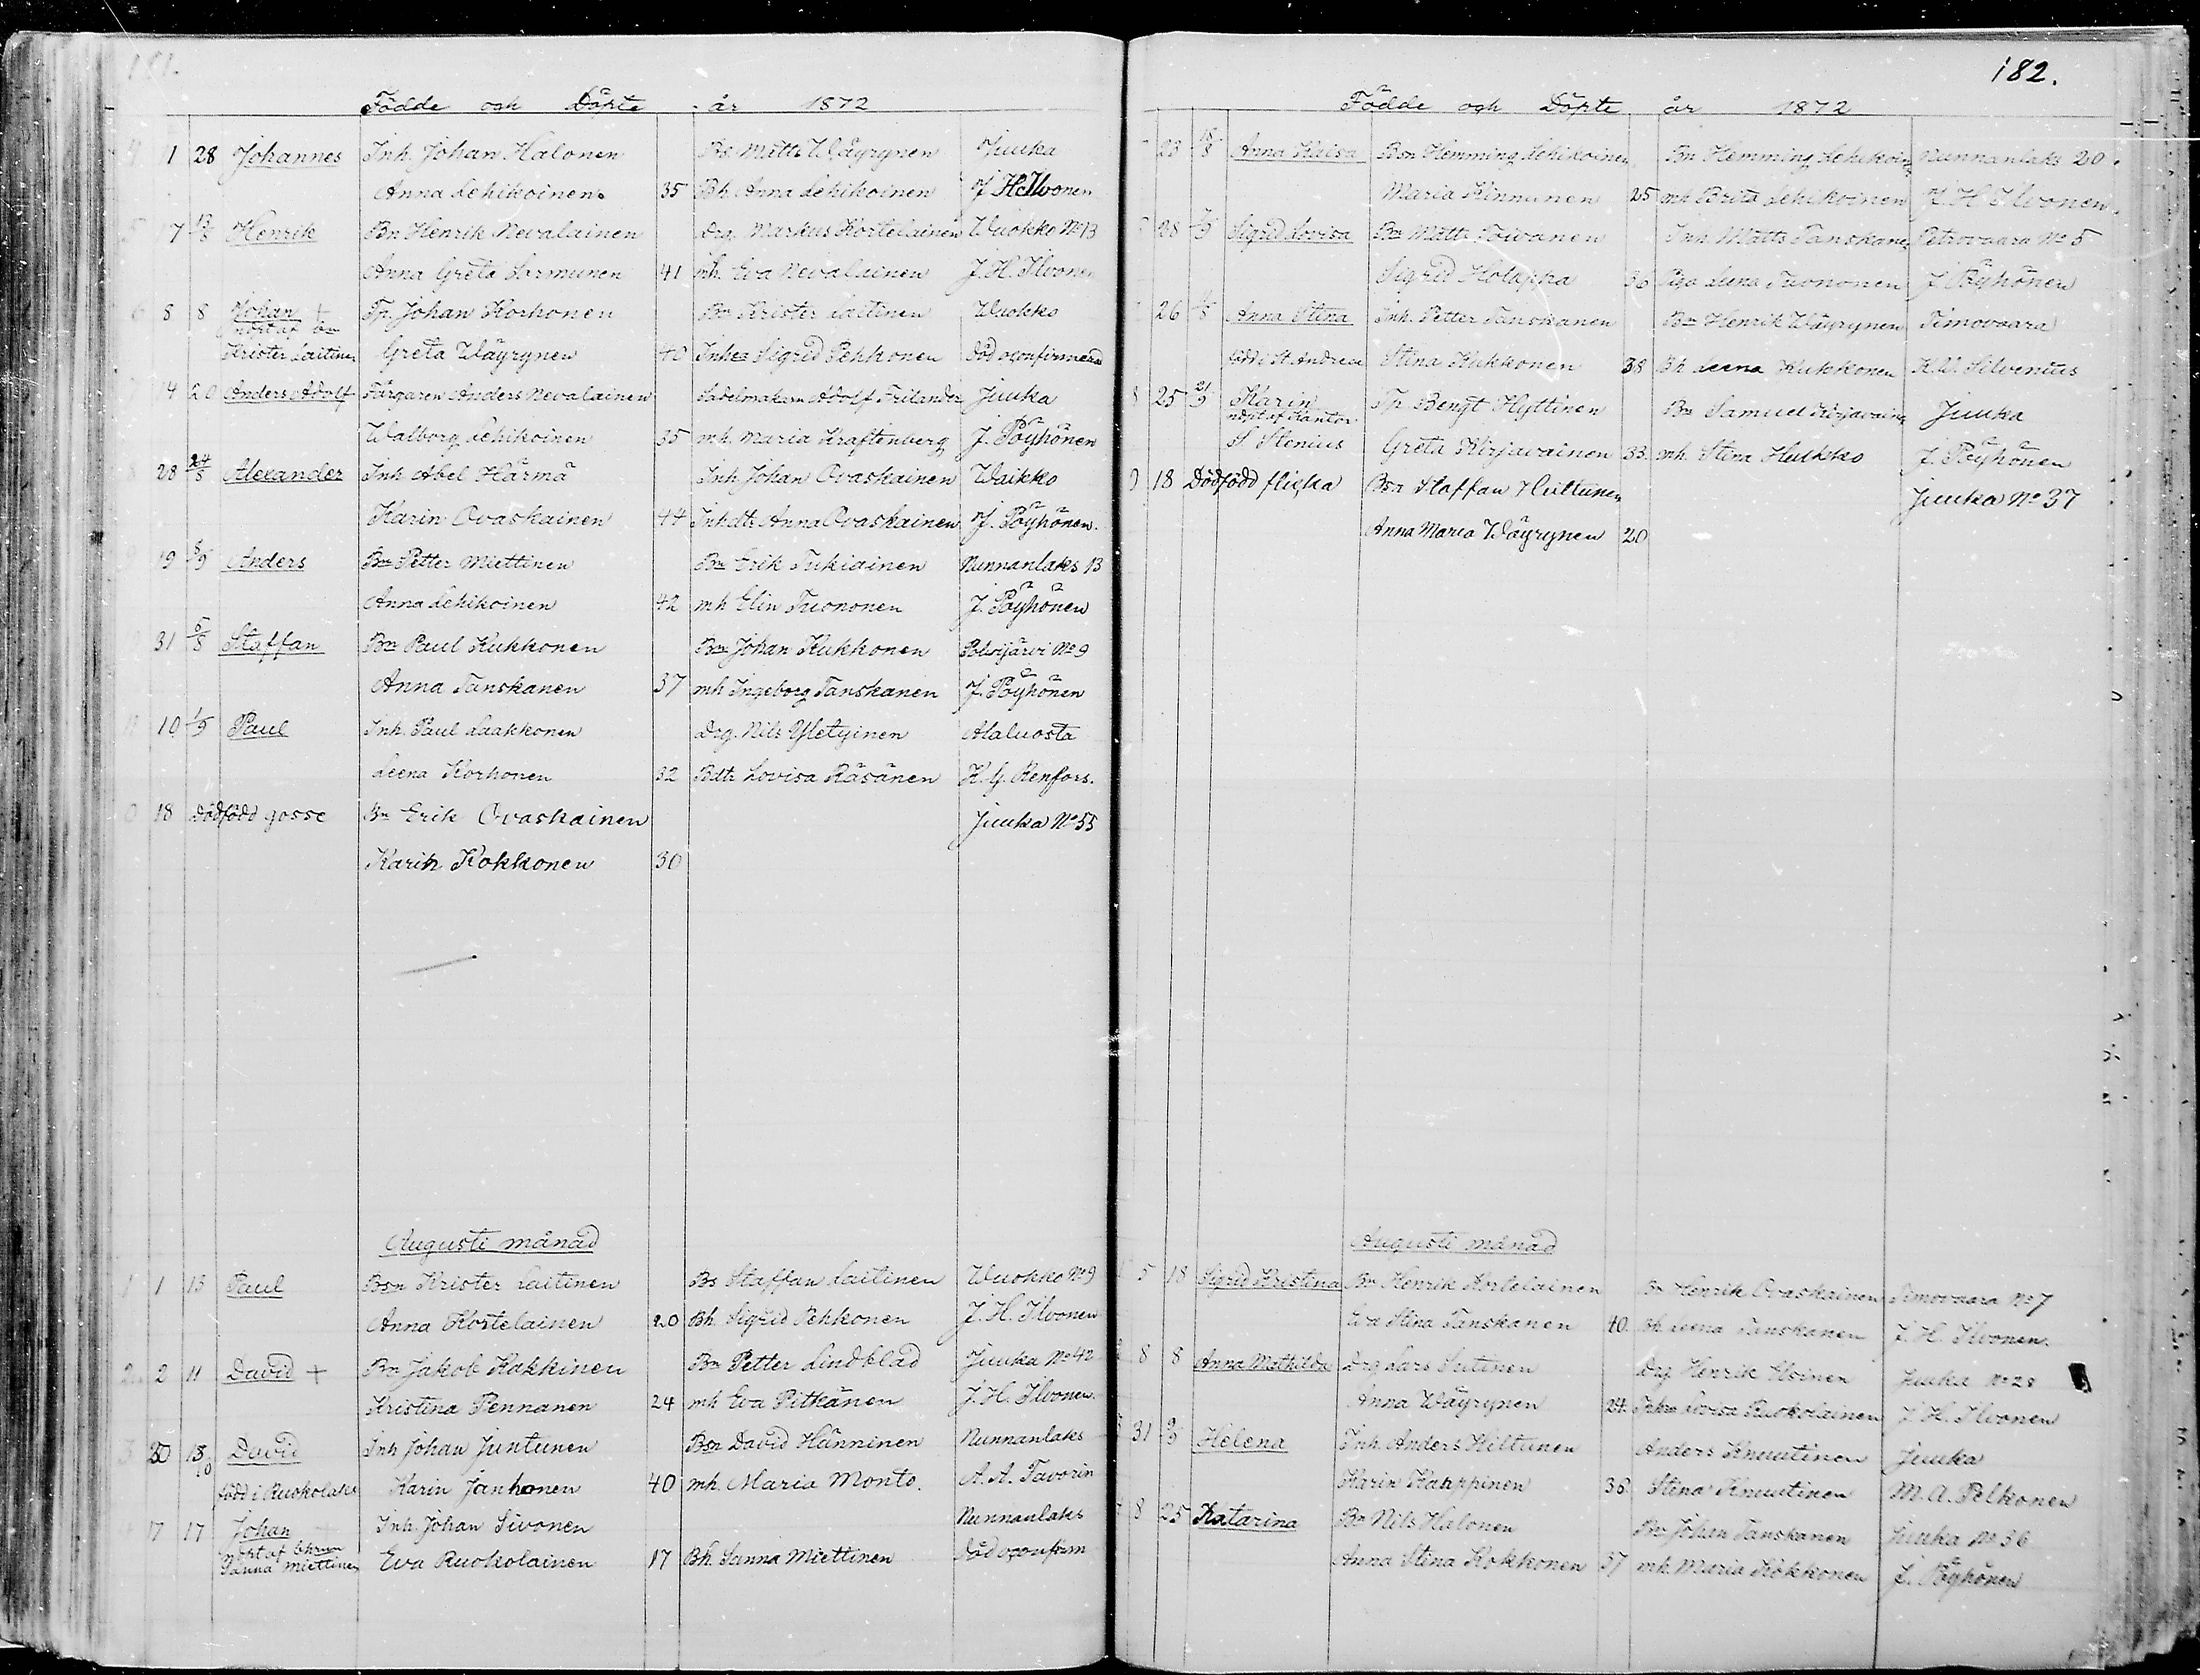 181.
Födde och Döpte år 1872
1 28 Johannes Inh. Johan Halonen Bs. Matts Wäyrynen Juuka
Anna Lehikoinen 35 Bh. Anna Lehikoinen J. H. Ilvonen
17 13/8 Henrik Bn Henrik Nevalainen Drg. Markus Kortelainen Wuokko No 13
Anna Greta Sormunen 41 mh. Eva Nevalainen J. H. Ilvonen
6 8 8 Johan + Tp. Johan Korhonen Bn Krister Laitinen Wuokko
nödt af bn
Krister Laitinen Greta Wäyrynen 40 Inhea Sigrid Pehkonen Död oconfirmerad
7 14 20 Anders Adolf Färgaren Anders Nevalainen Sadelmakarn Adolf Frilander Juuka
Walborg Lehikoinen 35 mh. Maria Kraftenberg J. Pöyhönen
8 28 24/8 Alexander Inh Abel Härmä Inh. Johan Ovaskainen Waikko
Karin Ovaskainen 44 Inhdtr Anna Ovaskainen J. Pöyhönen.
19 8/9 Anders Bn Petter Miettinen Bn Erik Tukiainen Nunnanlaks 13
Anna Lehikoinen 42 mh Elin Tuononen J. Pöyhönen
31 5/8 Staffan Bn Paul Kukkonen Bn Johan Kukkonen Polvijärvi No 9
Anna Tanskanen 37 mh Ingeborg Tanskanen J. Pöyhönen
10 1/9 Paul Inh. Paul Laakkonen Drg. Nils Yletyinen Alaluosta
Leena Korhonen 32 Bdtr Lovisa Räsänen K. G. Renfors.
18 Dödfödd gosse Bn Erik Ovaskainen Juuka No 55
Karin Kokkonen 30
Augusti månad
1 1 13 Paul Bsn Krister Laitinen Bs Staffan Laitinen Wuokko No 9
Anna Kortelainen 20 Bh. Sigrid Pehkonen J. H. Ilvonen
2 2 11 David + Bn Jakob Kakkinen Bn Petter Lindblad Juuka No 42
Kristina Pennanen 24 mh Eva Pitkänen J. H. Ilvonen.
30 13/10 David Inh Johan Juntunen Bsn David Hänninen Nunnanlaks
född i Ruokolaks Karin Janhonen 40 mh. Maria Monto. A. A. Favorin
17 17 Johan Inh. Johan Sivonen Nunnanlaks
nödt af
Sanna Miettinen Eva Ruokolainen 17 Bh. Sanna Miettinen Död oconfirm
182.
Födde och Döpte år 1872
23 18/8 Anna Kaisa Bsn Hemming Lehikoinen Bn Hemming Lehikoin Nunnanlaks 20.
Maria Kinnunen 25 mh Brita Lehikoinen J. H Ilvonen.
28 Sigrid Lovisa Bn Matts Toivanen Inh. Matts Tanskanen Petrovaara No 5
Sigrid Holappa 36 Piga Leena Tuononen J Pöyhönen
26 Anna Stina Inh. Petter Tanskanen Bn Henrik Wäyrynen Timovaara
född i St. Andreae Stina Kukkonen 38 Bh Leena Kukkonen K. W. Silvenius
25 21/9 Karin Tp. Bengt Hyttinen Bn Samuel Kirjavainen Juuka
nödt af Kantor
S Stenius Greta Kirjavainen 33. mh. Stina Huikko J. Pöyhönen
18 Dödfödd flicka Bsn Staffan Hiltunen Juuka No 37
Anna Maria Wäyrynen 20
Augusti månad
5 18 Sigrid Kristina Bn Henrik Kortelainen Bn Henrik Ovaskainen Timovaara No 7
Eva Stina Tanskanen 40. Bh Leena Tanskanen J. H. Ilvonen.
8 8 Anna Mathilda Drg Lars Sutinen Drg Henrik Juuka No 28
Anna Wäyrynen 24. Lovisa Ruokolainen J. H. Ilvonen
31 9/9 Helena Inh. Anders Hiltunen Anders Knuutinen Juuka
Karin Kauppinen 36 Stina Knuutinen M. A. Pelkonen
8 25 Katarina Bn Nils Halonen Bn Johan Tanskanen Juuka No 36
Anna Stina Kokkonen 37 mh. Maria Kokkonen J. Pöyhönen